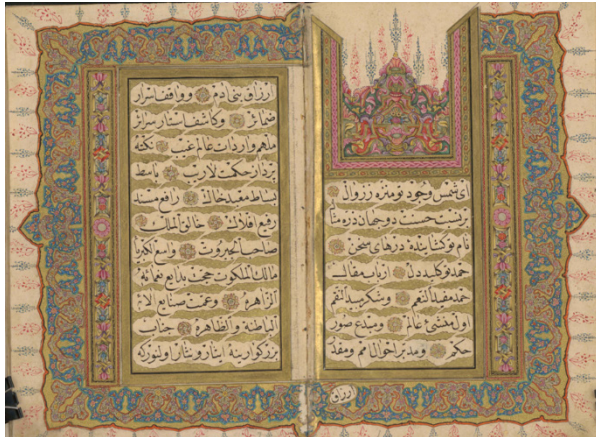 ای شمس وجود تو منزه ز زوال
ز نسبت حسنت دو جهان ذره مثال
نام تو کشاینده درهای سخن
حمد تو کلید در ارباب مقال
حمد مفید النعم وشکر مبید النقم
اول منشئ عالم ومبدع صور
حکم ومدبر احوال امم ومقدر
ارزاق
ارزاق بنی ادم وواقف اسرار
ضمائر وکاشف استار سرائر
ملهم واردات عالم غیب نکته
پرداز حکمت لاریب باسط
بساط مغبر خاک رافع مسند
رفیع افلاک خالق الملک
صاحب الجبروت واسع الکبریا
مالک الملکوت حجت بدایع نعمائه
الزاهره وعمت صنایع الائه
الباطنه والظاهره جناب
بزرکوارینه ایثار ونثار اولنور که